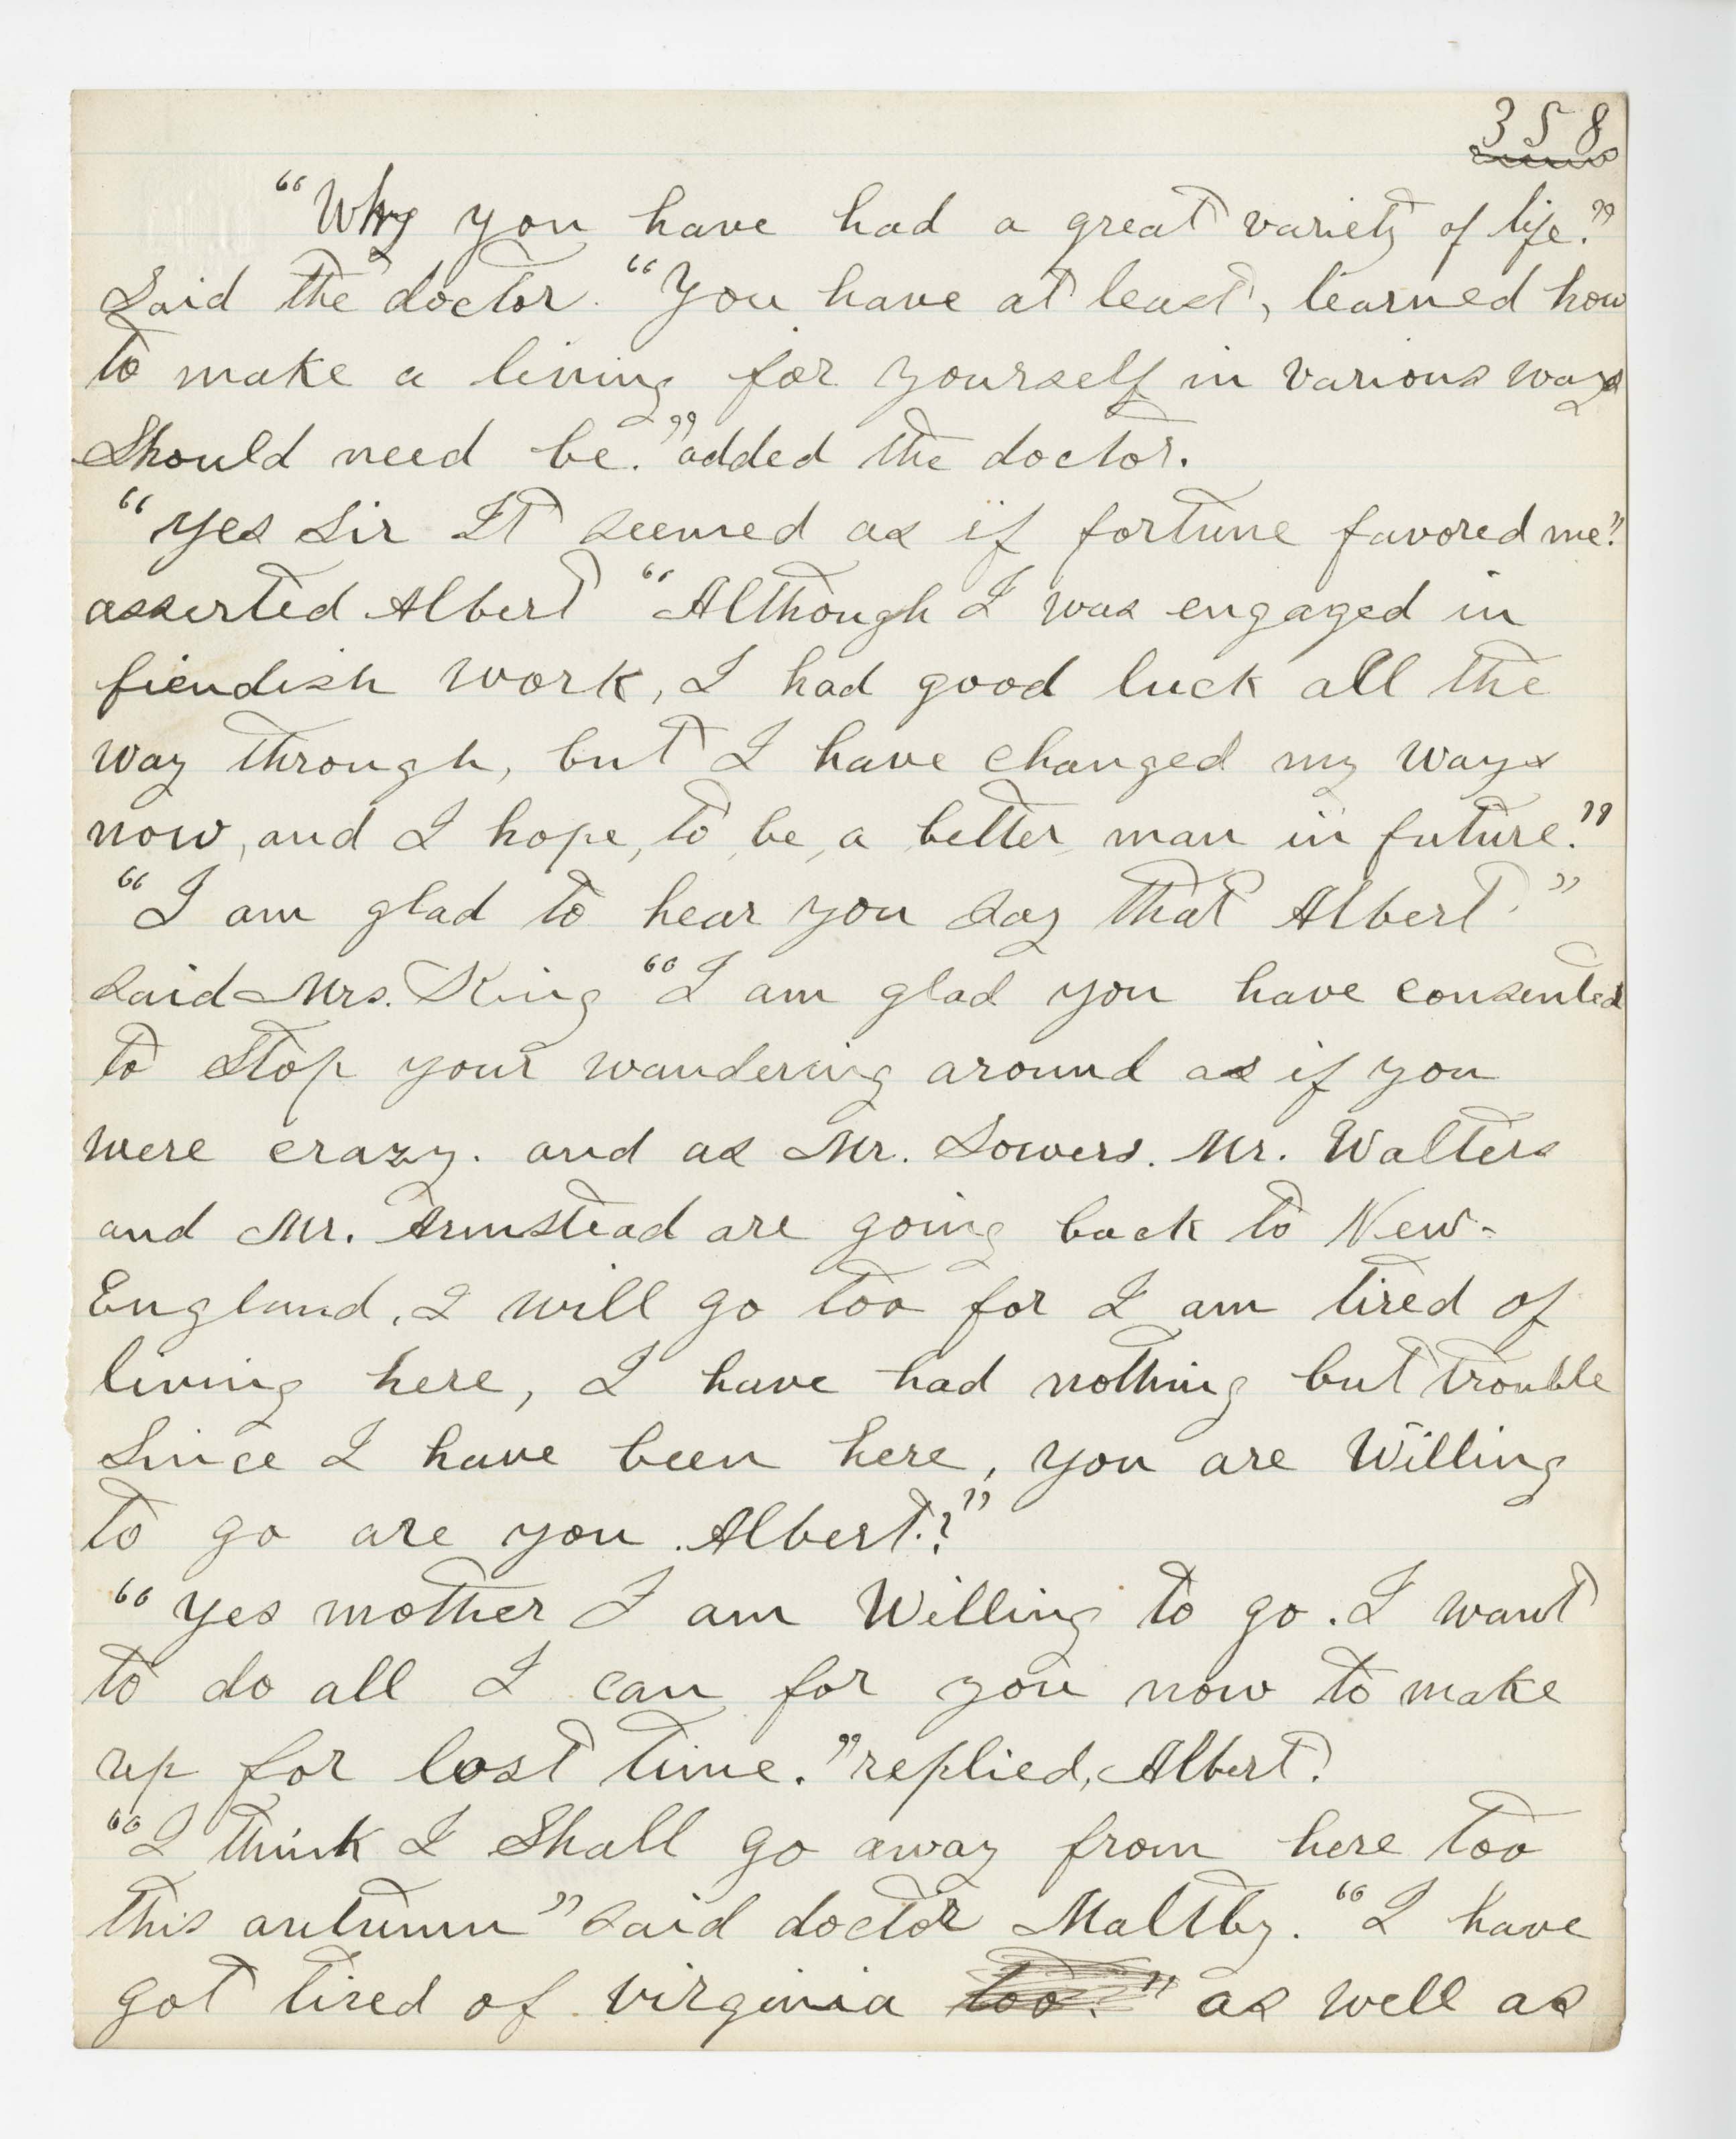 358
"Why you have had a great variety of life."
Said the doctor. "You have at least, learned how
to make a living for yourself in various ways
Should need be." added the doctor.
"Yes Sir It seemed as if fortune favored me."
asserted Albert "Although I was engaged in
fiendish work, I had good luck all the
way through, but I have changed my ways
now, and I hope, to be, a better man in future."
"I am glad to hear you say that Albert."
said Mrs. King "I am glad you have consented
to Stop your wandering around as if you
were crazy. and as Mr. Sowers. Mr. Walters
and Mr. Armstead are going back to New-
England, I will go too for I am tired of
living here, I have had nothing but trouble
Since I have been here, you are Willing
to go are you Albert.?"
"Yes mother I am Willing to go. I want
to do all I can for you now to make
up for lost time." replied, Albert.
"I think I Shall go away from here too
this autumn" said doctor Maltby. "I have
got tired of virginia too." as well as